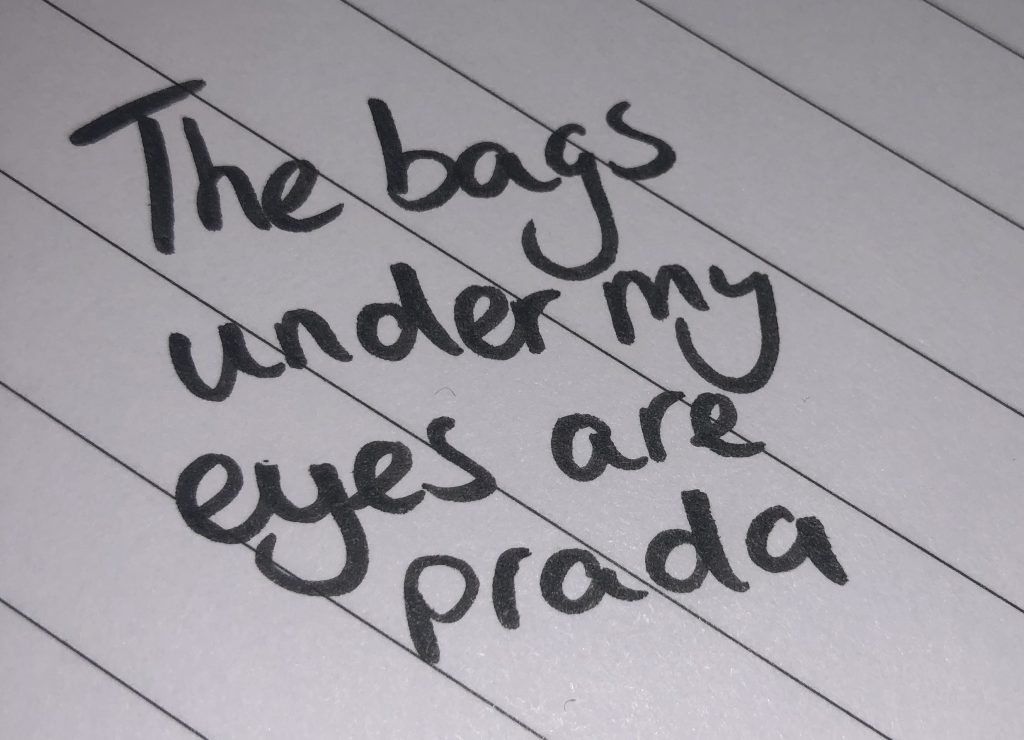 The bags
under my
eyes are
prada